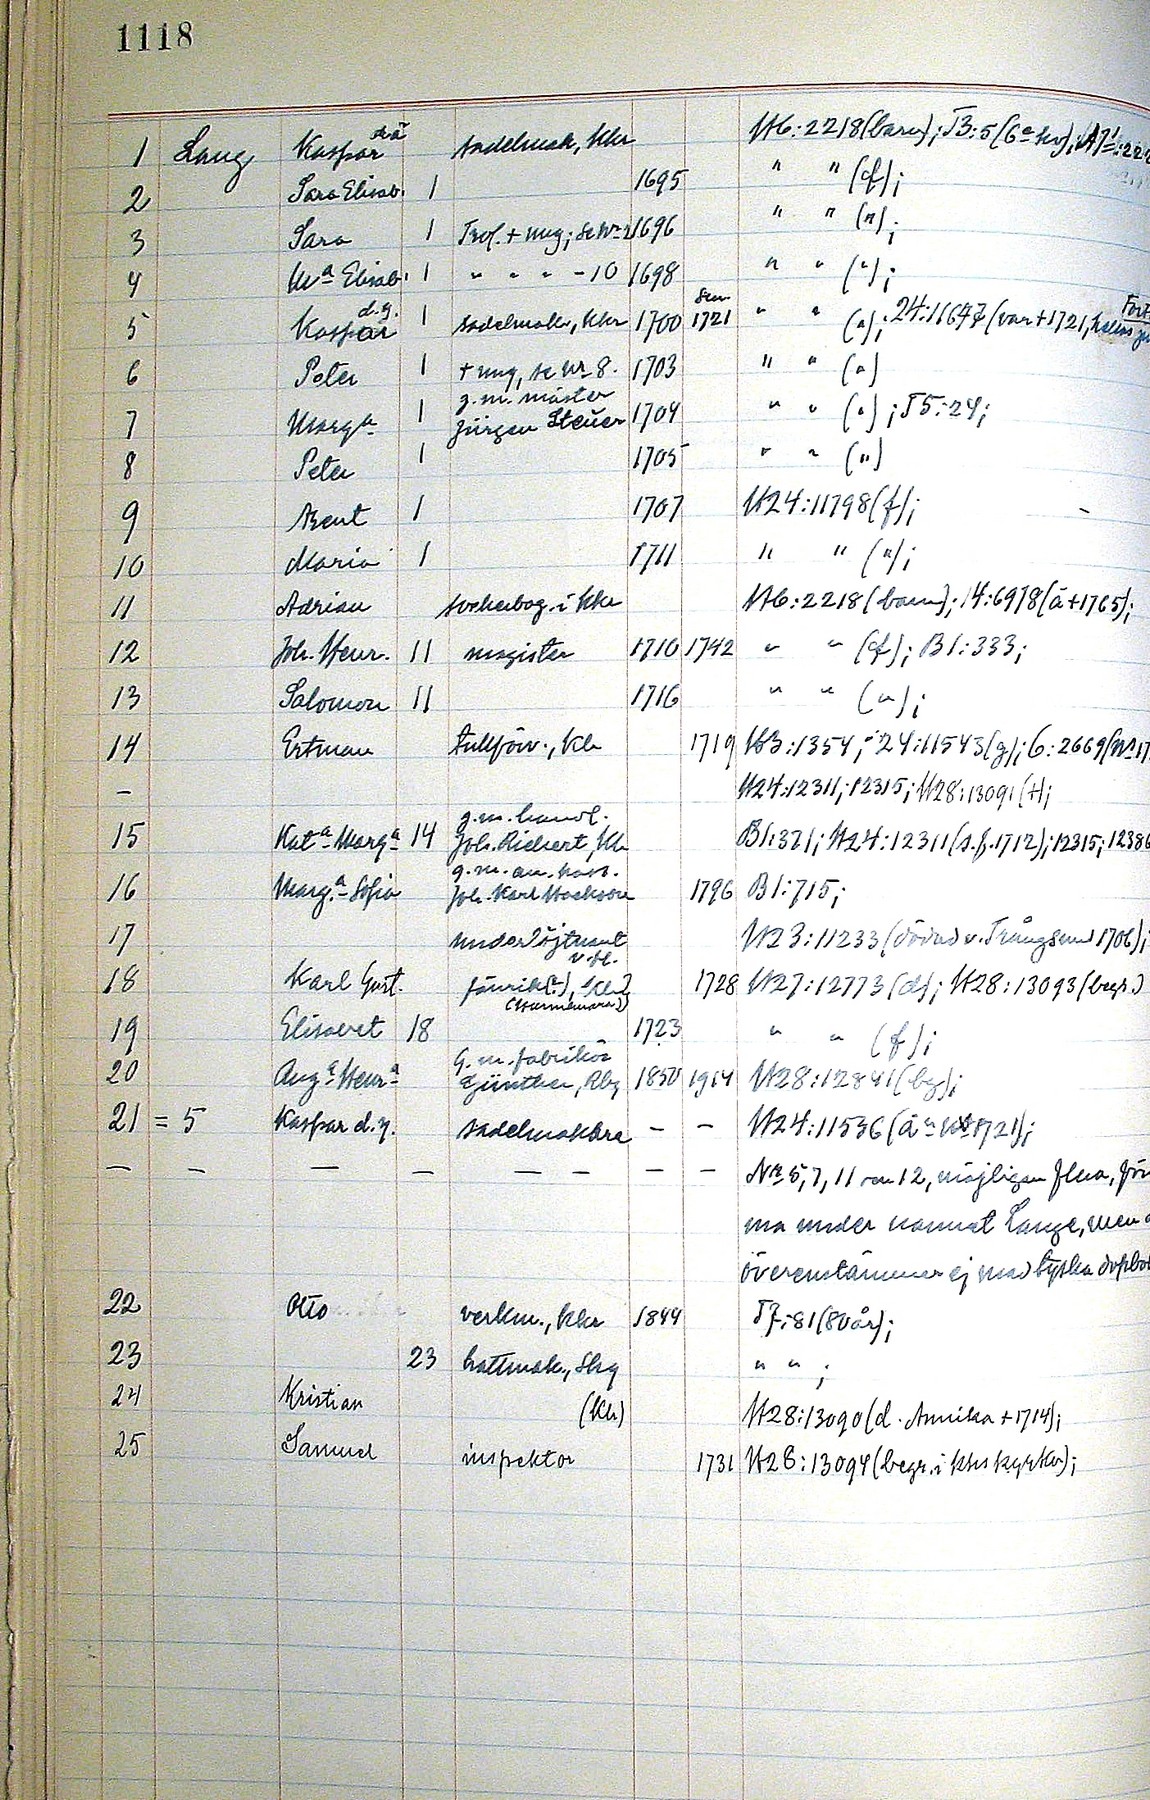 1118
1 Lang Kaspar d.ä. sadelmak., Kkr H6:2218(barn); J3:5(
2 Sara Elisab. 1 1695 " " (f);
3 Sara 1 + ung; se Nr 1696 " " (");
4 Mª Elisab. 1 " " " - 10 1698 " " (");
5 Kaspar d.y. 1 sadelmak., Kkr 1700 1721 " " ("); 24:11647 (var + 1721,
6 Peter 1 + ung, se Nr 8. 1703 " " (")
7 Margª 1 g.m. mäster Jürgen Steuer 1704 " " ("); J5:24;
8 Peter 1 1705 " " (")
9 Arent 1 1707 H24:11798(f);
10 Maria 1 1711 " " (");
11 Adrian sockerbag. i Kkr H6:2218(barn); 14:6978(ä+1765);
12 Joh. Henr. 11 magister 1710 1742 " " (f); B1:333;
13 Salomon 11 1716 " " (");
14 Ertman tullförv., Kh 1719 H3:1354; 24:11543(g); 6:2669(
– H24:12311; 12315; H28:13091(+);
15 Katª Margª 14 g.m. handl. Joh. Rickert, Kh B1:321; H24:12311(s.f. 1712); 12315; 12386
16 Marg.ª Sofia g.m. Joh. Karl 1796 B1:715;
17 underlöjtnant v. fl. H23:11233(dödad v. Trångsund 1706);
18 Karl Gust. fänrik(?), 1728 H27:12773(d); H28:13093(begr.)
19 Elisavet 18 1723 " " (f);
20 Augª Henrª G.m. fabrikör Günther, Rbg 1850 1914 H28:12841(bg);
21 = 5 Kaspar d.y. sadelmakare – – H24:11536(ä 1721);
– – – – – – – – Nr 5, 7, 11 och 12, möjligen flera, för
ma under namnet Lange, men
överenstämmer ej med tyska dopbok
22 Otto verkm., Kkr 1844 J7:81(80 år);
23 23 hattmak., Sbg " " ;
24 Kristian (Kh) H28:13090(d. Annika + 1714);
25 Samuel inspektor 1731 H28:13094(begr. i Khs kyrka);